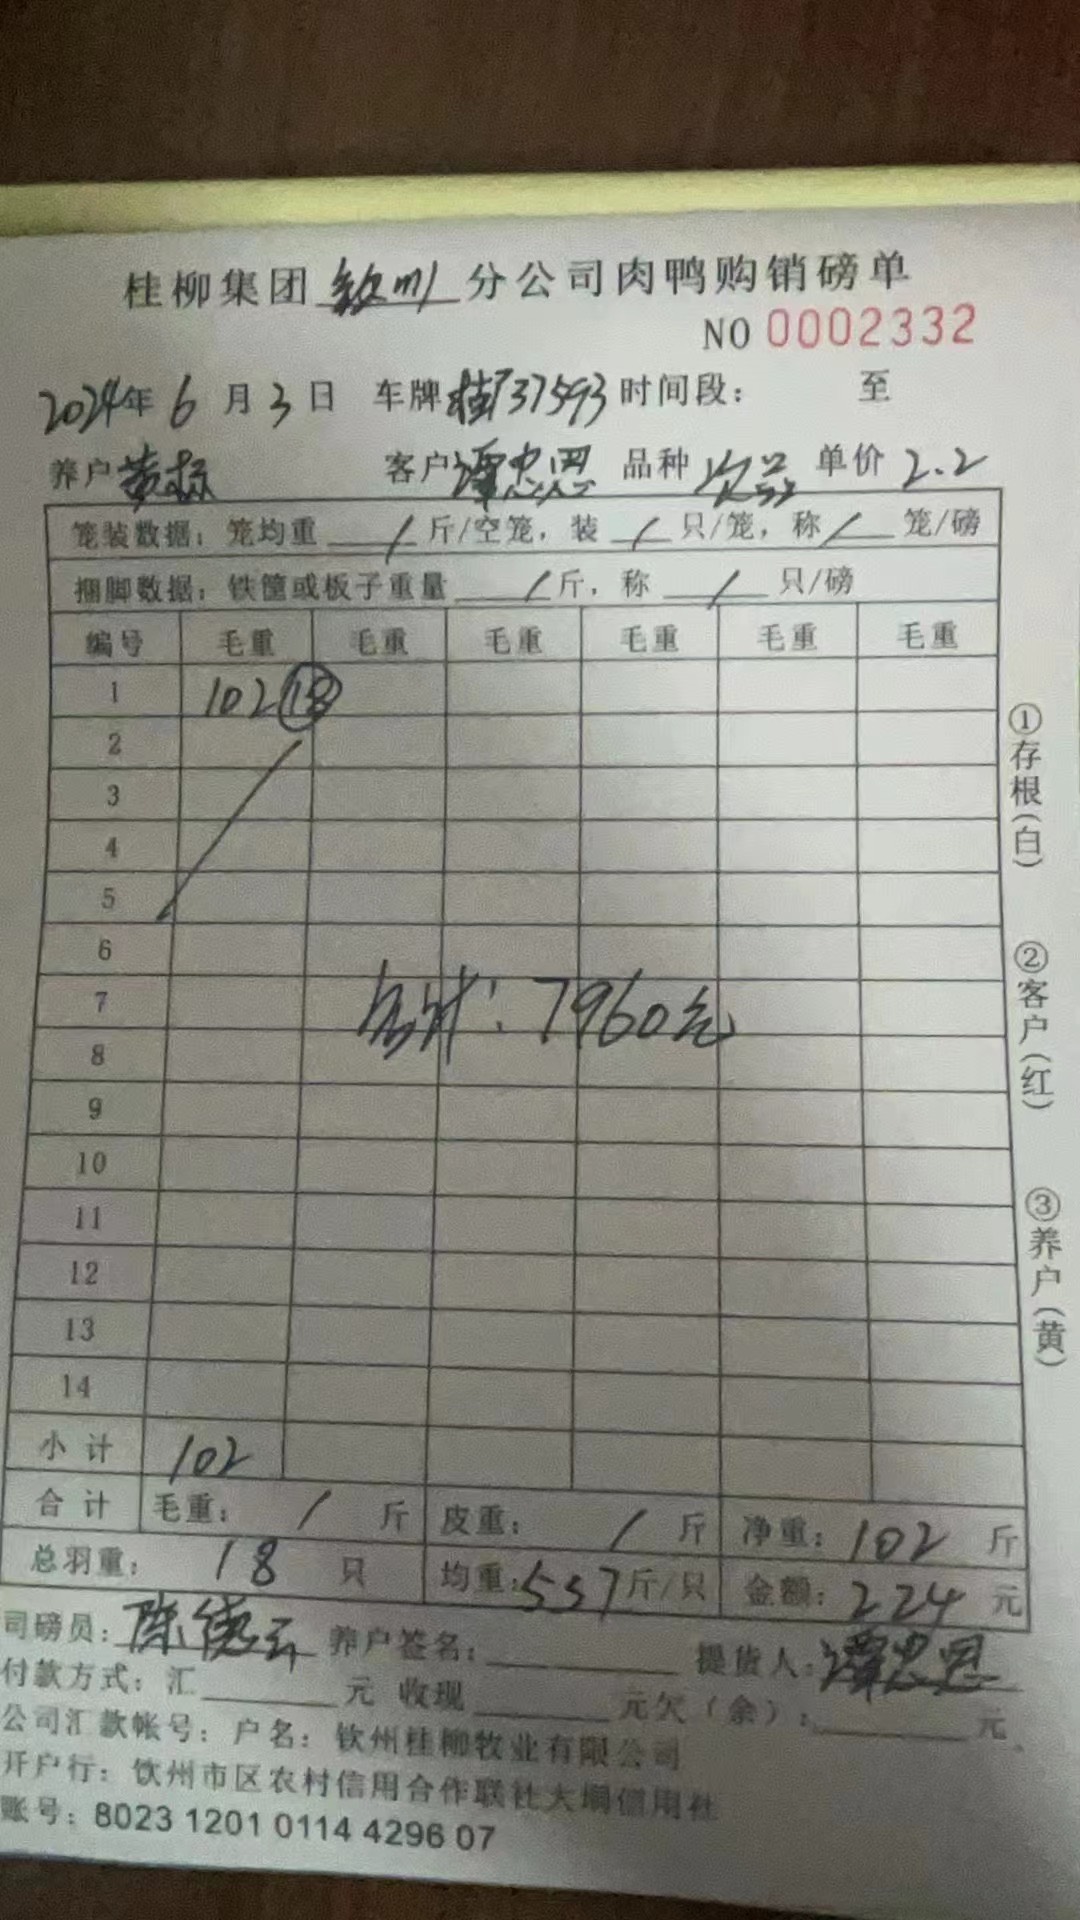 桂柳集团钦州分公司肉鸭购销磅单
NO 0002332
2024年6月3日 车牌桂F37593时间段： 至
养户黄振 客户谭忠恩 品种次品 单价2.2
笼装数据：笼均重 / 斤/空笼，装 / 只/笼，称 / 笼/磅
捆脚数据：铁筐或板子重量 / 斤，称 / 只/磅
编号 毛重 毛重 毛重 毛重 毛重 毛重
1 102 18
2
3
4
5
6
7
合计：7960元
8
9
10
11
12
13
14
小计 102
合计 毛重： / 斤 皮重： / 斤 净重：102 斤
总羽重： 18 只 均重：5.37斤/只 金额：224元
司磅员：陈德云 养户签名： 提货人：谭忠恩
付款方式：汇 元 收现 元欠（余）： 元。
公司汇款帐号：户名：钦州桂柳牧业有限公司
开户行：钦州市区农村信用合作联社大垌信用社
账号：8023 1201 0114 4296 07
①存根(白)
②客户(红)
③养户(黄)